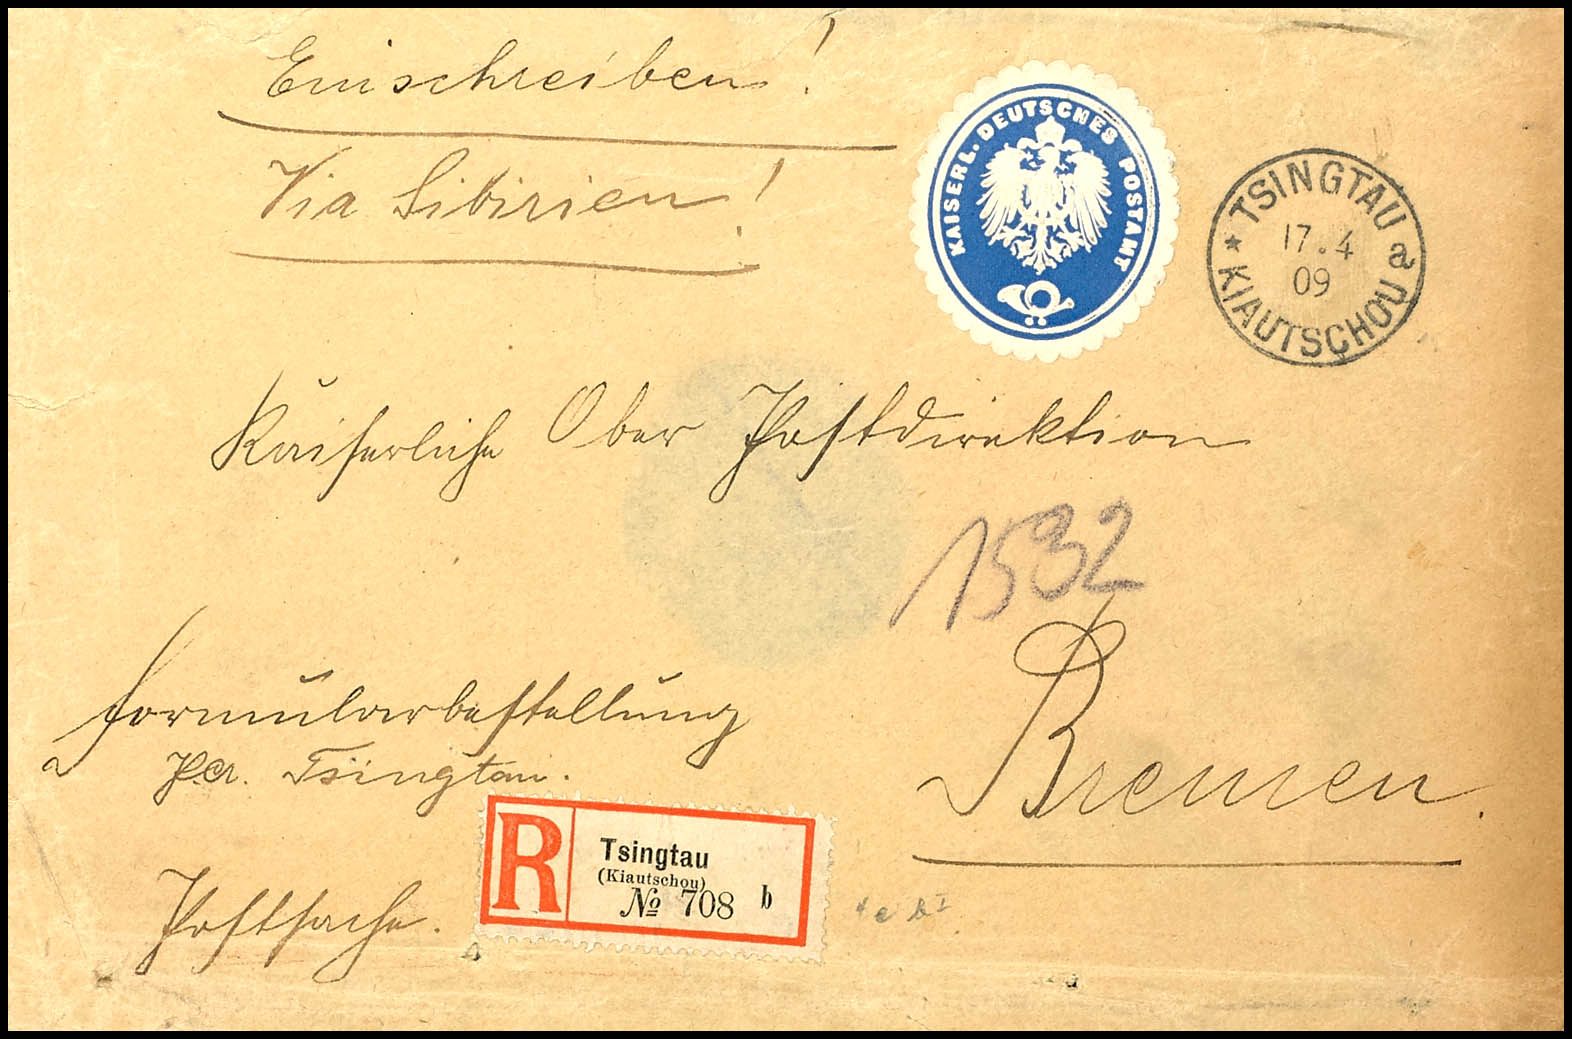 Einschreiben!
Via Sibirien!
KAISERL. DEUTSCHES POSTAMT
TSINGTAU a
17.4
09
* KIAUTSCHOU
Kaiserliche Ober Postdirektion
1532
Bremen.
Formularbestellung
Tsingtau.
R
Tsingtau
(Kiautschou)
№ 708 b
Postsache.